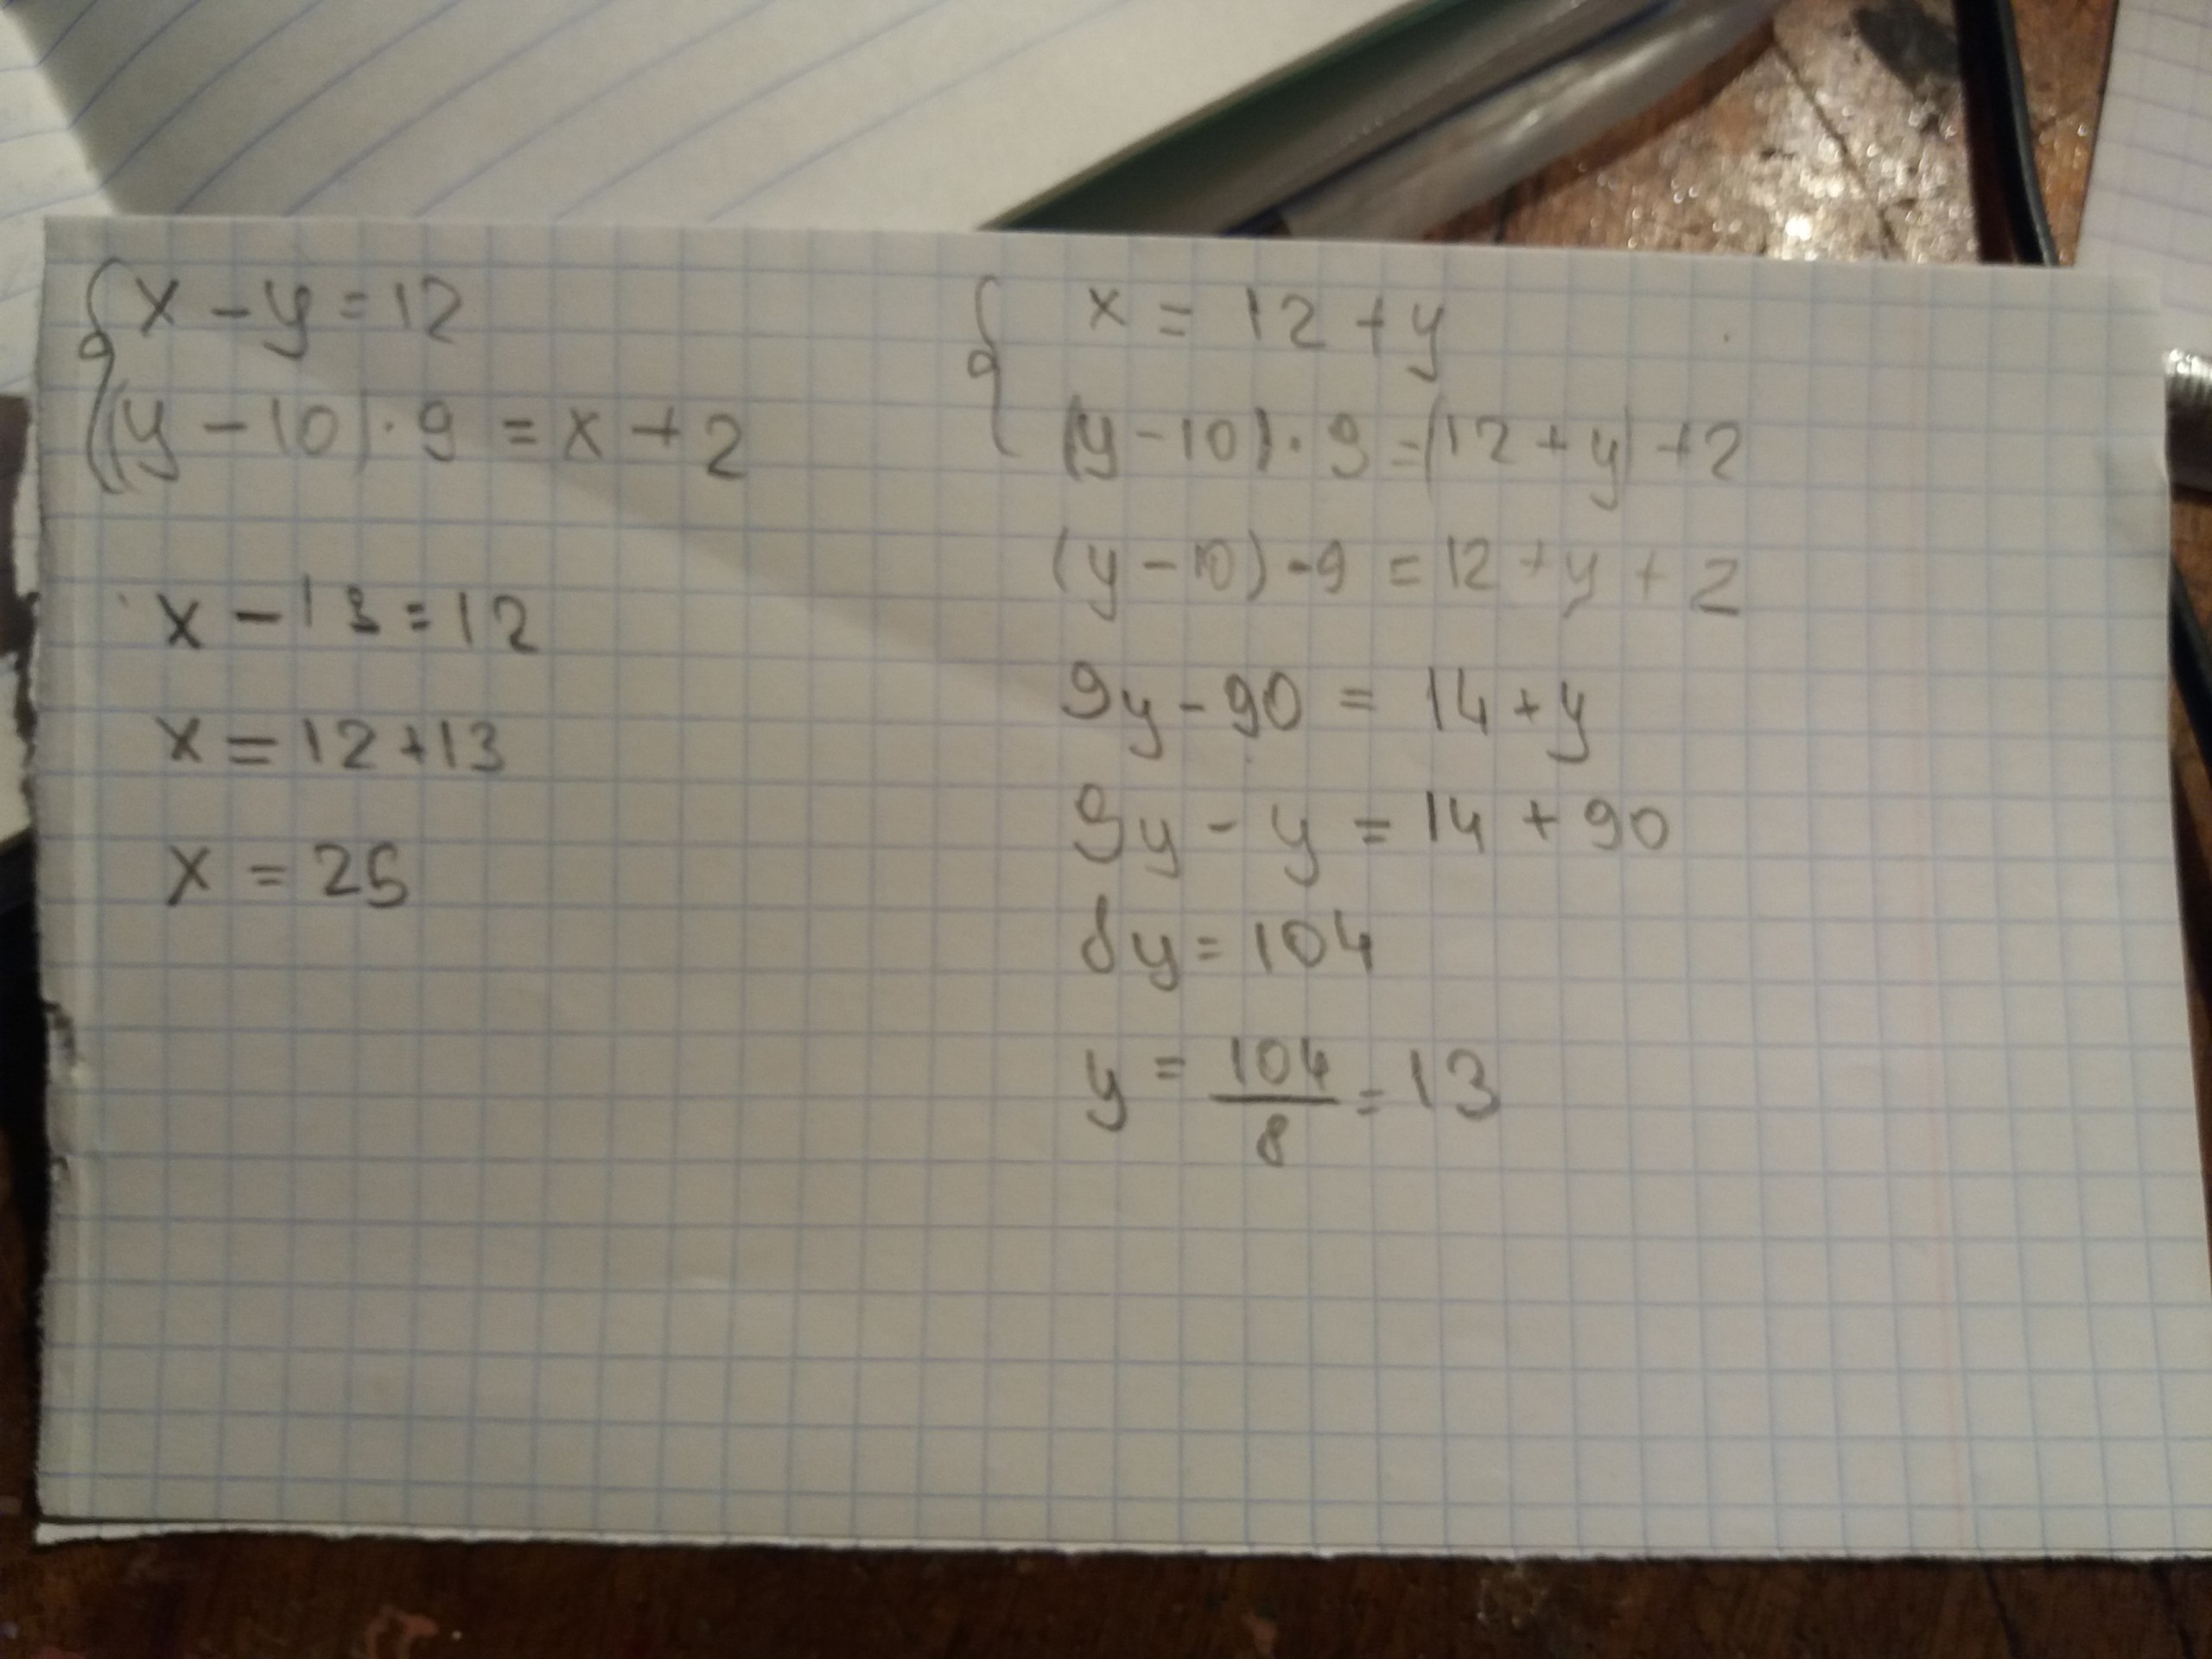 x - y = 12
(y - 10) · 9 = x + 2
x - 13 = 12
x = 12 + 13
x = 25
x = 12 + y
(y - 10) · 9 = (12 + y) + 2
(y - 10) · 9 = 12 + y + 2
9y - 90 = 14 + y
9y - y = 14 + 90
8y = 104
y = 104/8 = 13